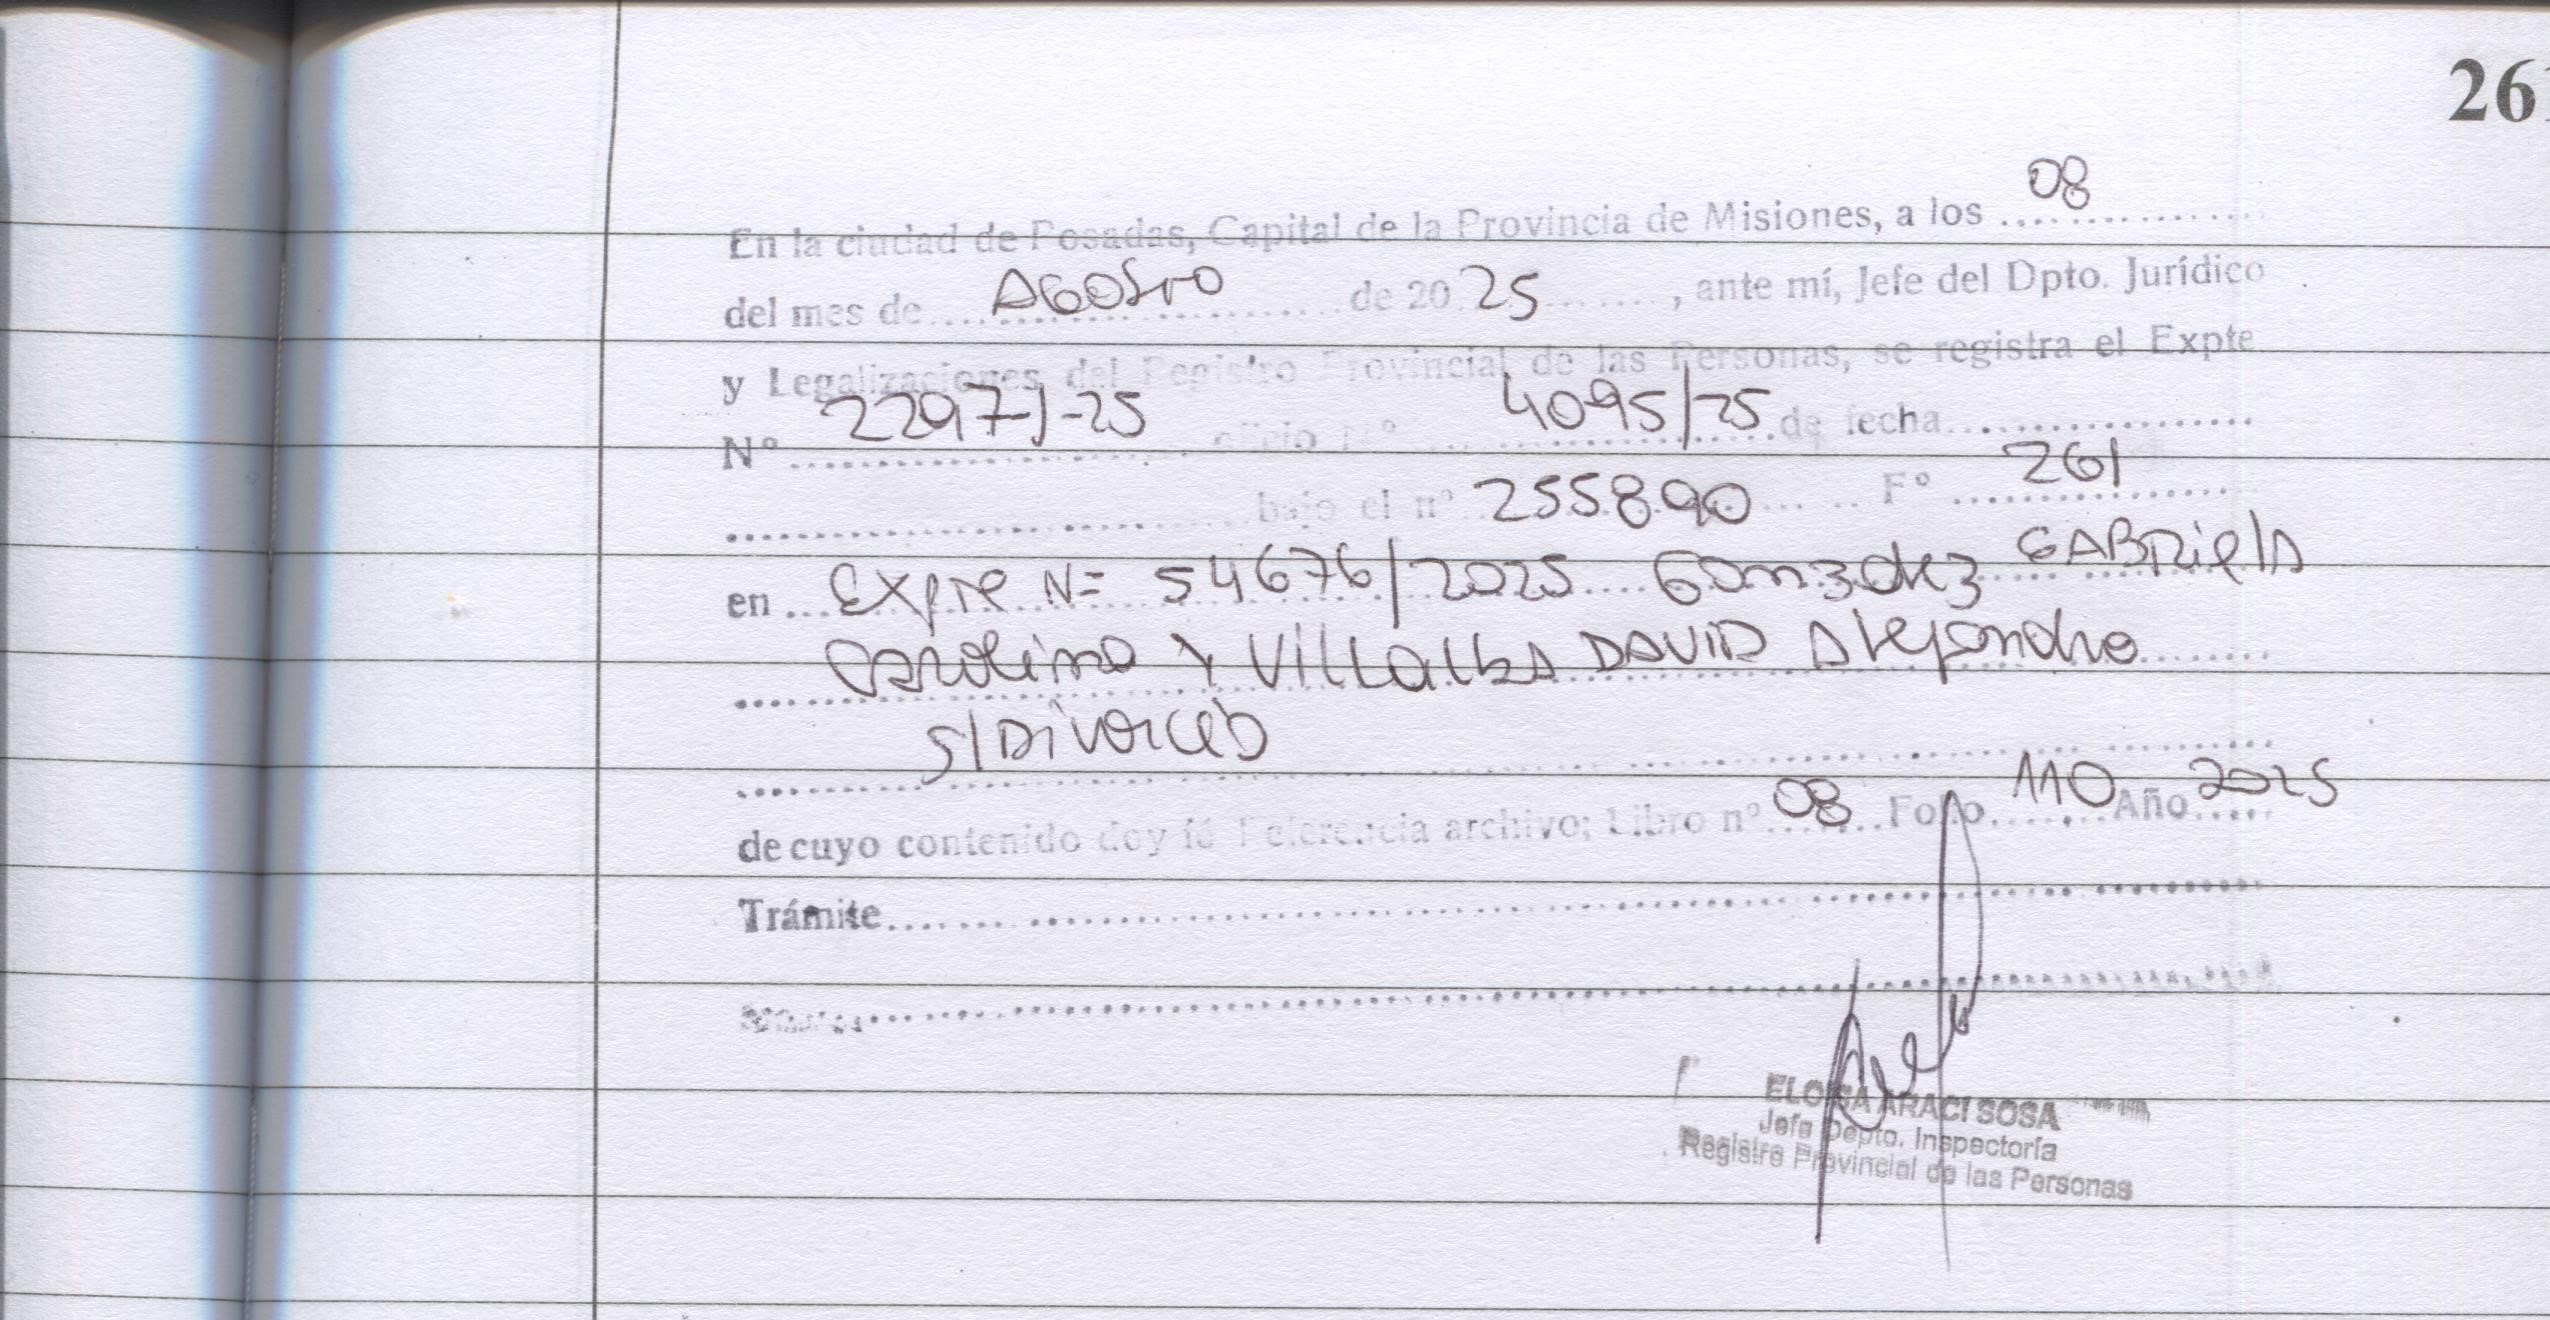 261
En la ciudad de Posadas, Capital de la Provincia de Misiones, a los 08
del mes de AGOSTO de 20 25, ante mí, Jefe del Dpto. Jurídico
y Legalizaciones del Registro Provincial de las Personas, se registra el Expte
N° 2297-J-25 oficio N° 4095/25 de fecha
bajo el n° 255890 F° 261
en Expte N= 54676/2025 Gonzalez GABRiela
Carolina Y Villalba DAVID Alejandro
S/Divorcio
de cuyo contenido doy fé Referencia archivo; Libro n° 08 Folio 110 Año 2025
Trámite
ELOISA ARACI SOSA
Jefe Depto. Inspectoría
Registro Provincial de las Personas